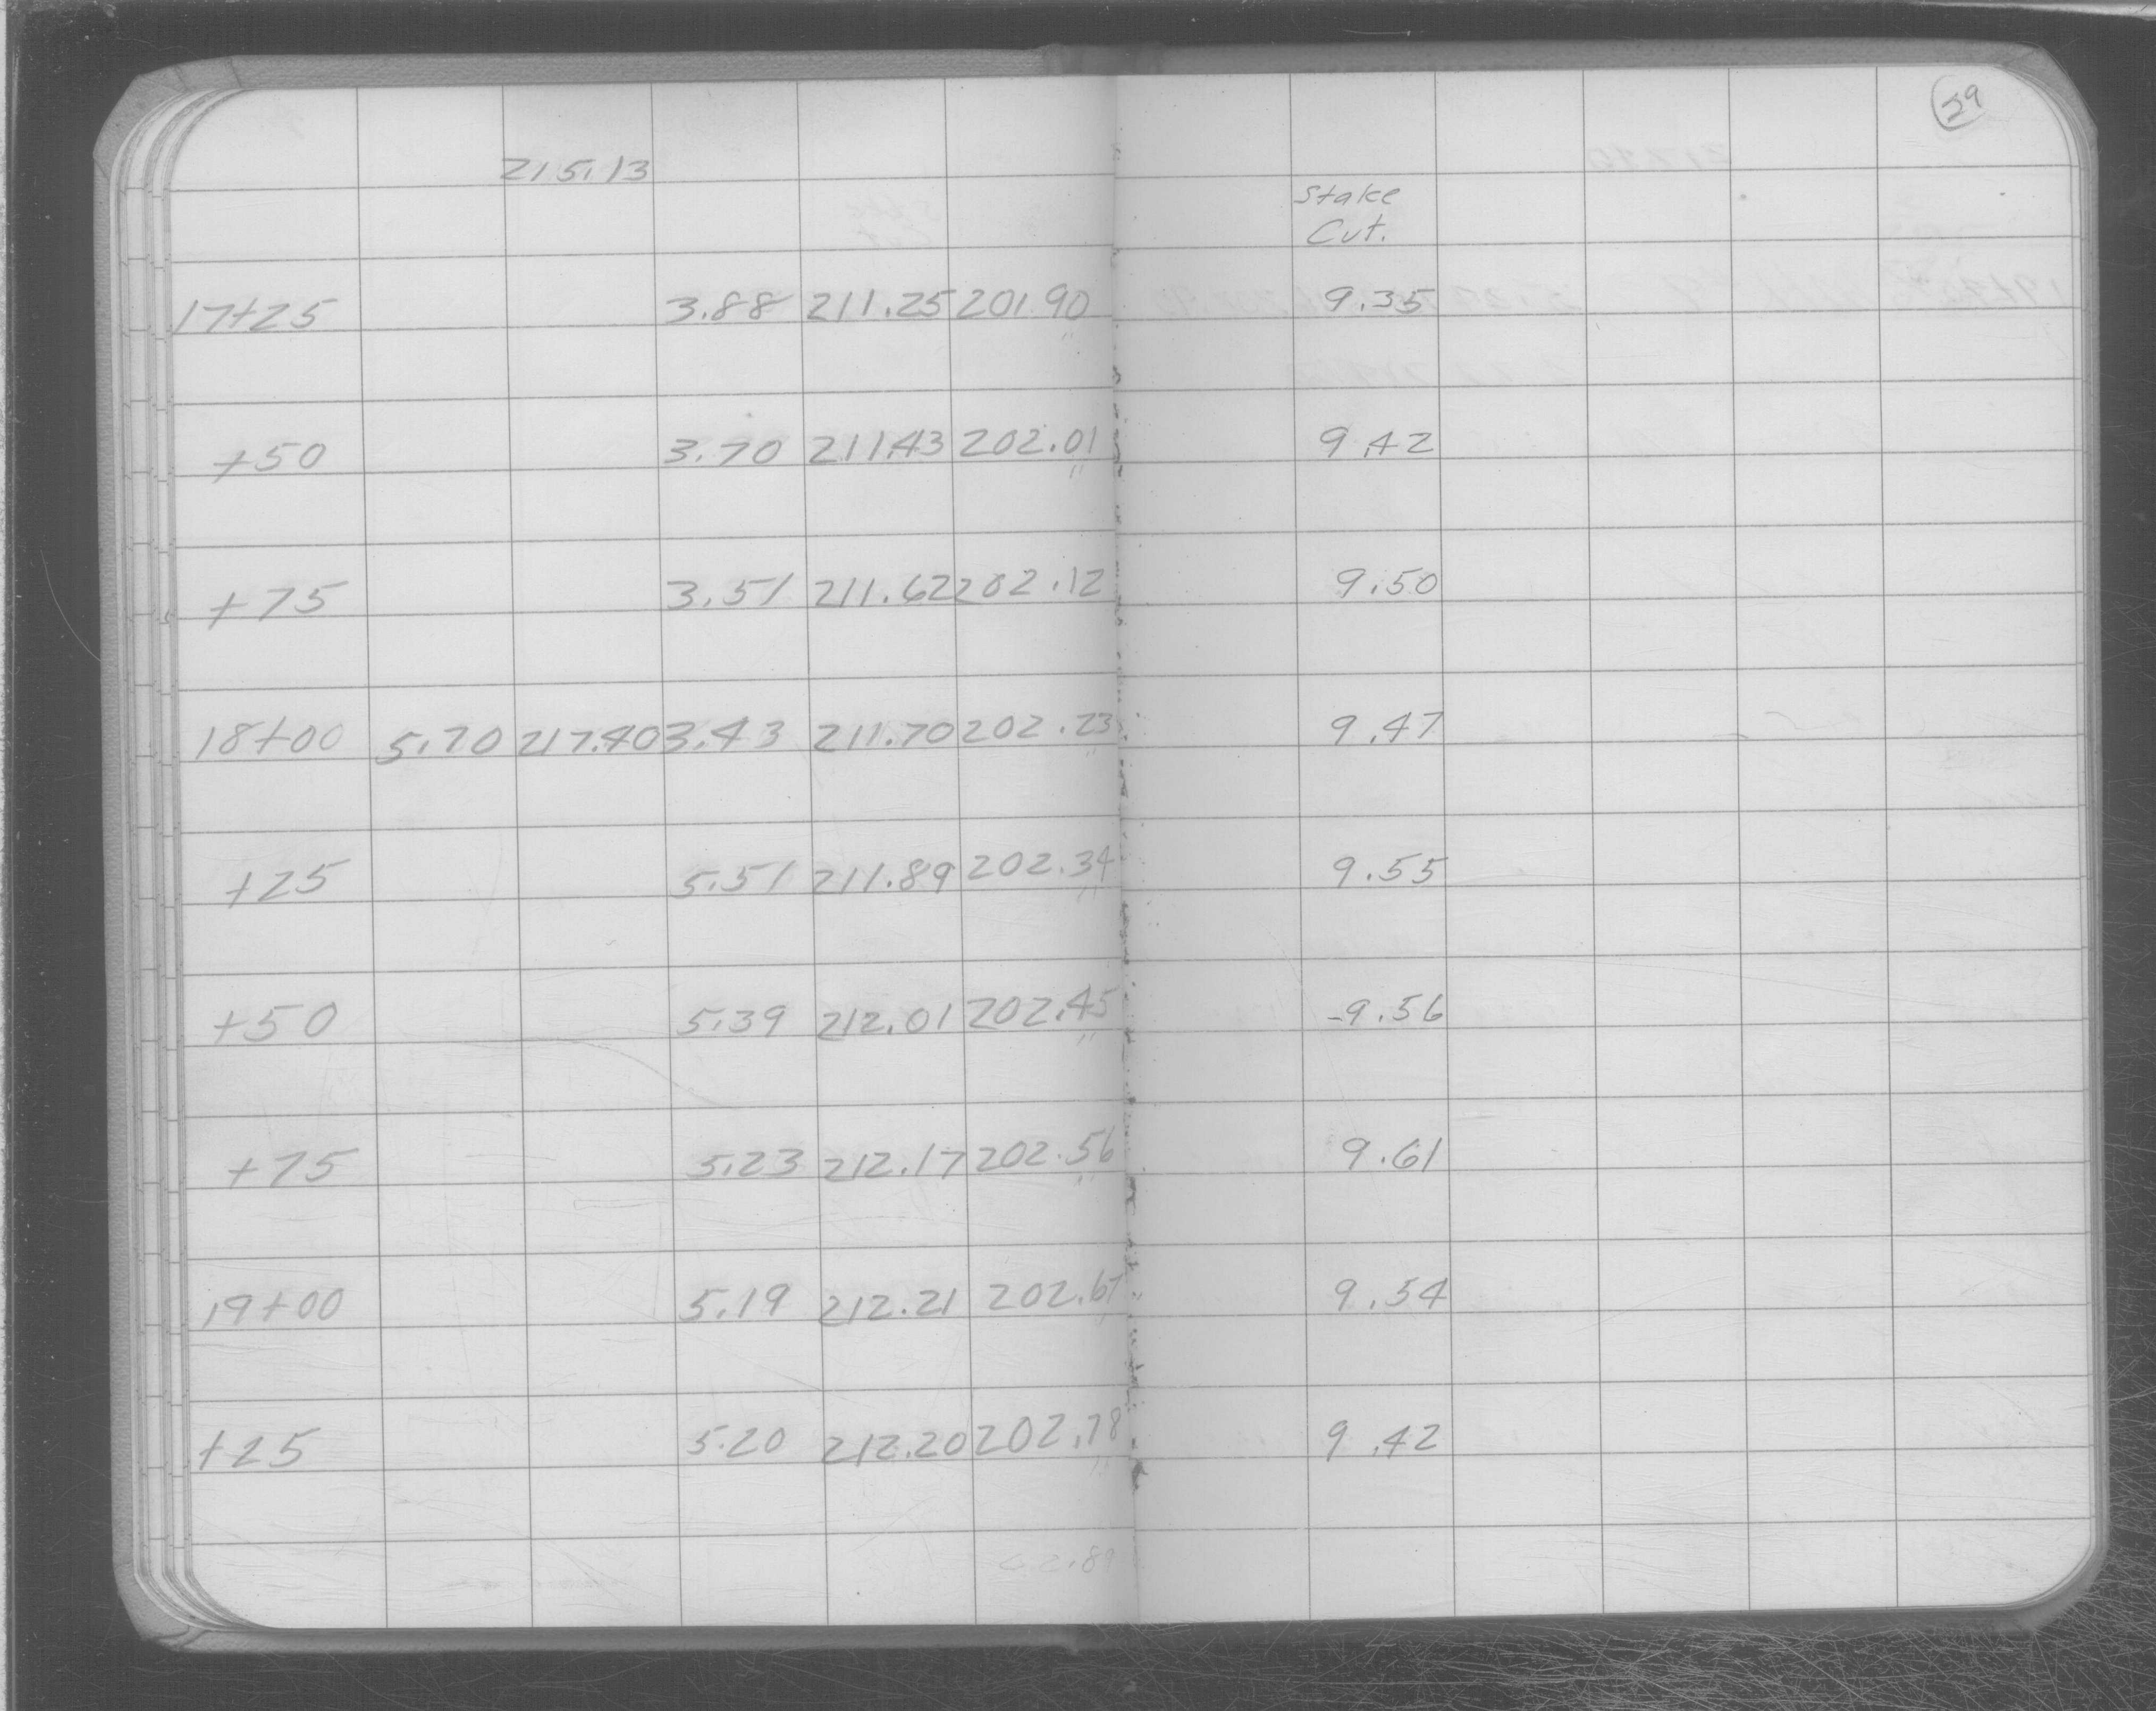 29
215.13
Stake
Cut.
17+25 3.88 211.25 201.90 9.35
+50 3.70 211.43 202.01 9.42
+75 3.51 211.62 202.12 9.50
18+00 5.70 217.40 3.43 211.70 202.23 9.47
+25 5.51 211.89 202.34 9.55
+50 5.39 212.01 202.45 -9.56
+75 5.23 212.17 202.56 9.61
19+00 5.19 212.21 202.67 9.54
+25 5.20 212.20 202.78 9.42